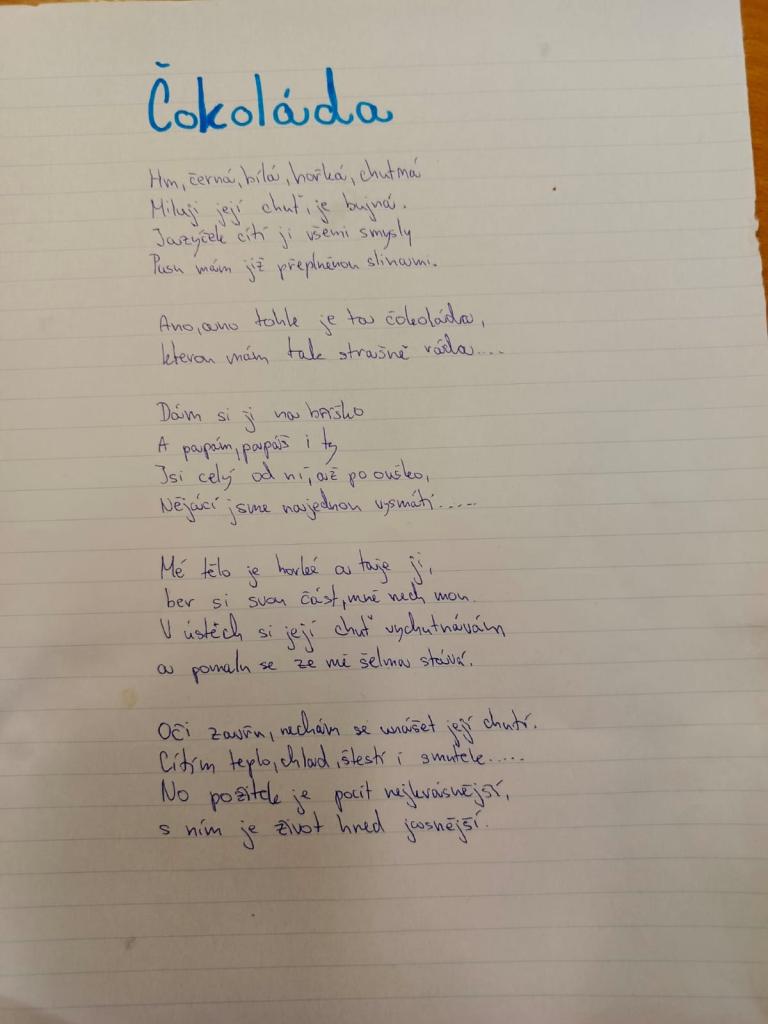 Čokoláda
Hm, černá, bílá, hořká, chutná
Miluji její chuť, je bujná.
Jazýček cítí ji všemi smysly
Pusu mám již přeplněnou slinami.
Ano, ano tohle je ta čokoláda,
kterou mám tak strašně ráda....
Dám si ji na bříško
A papám, papáš i ty
Jsi celý od ní, až po ouško,
Nějácí jsme najednou vysmátí.....
Mé tělo je horké a taje ji,
ber si svou část, mně nech mou.
V ústěch si její chuť vychutnávám
a pomalu se ze mě šelma stává.
Oči zavřu, nechám se unášet její chutí.
Cítím teplo, chlad, štestí i smutek.....
No požitek je pocit nejkrásnější,
s ním je život hned jasnější.